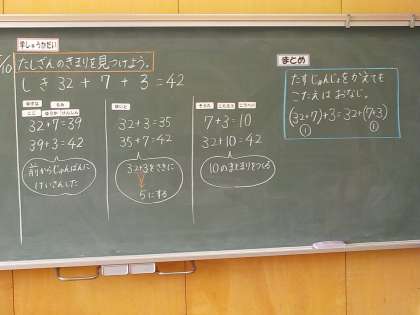 がくしゅうかだい
/10
たしざんのきまりを見つけよう。
しき 32 + 7 + 3 = 42
32+7=39
39+3=42
前からじゅんばんに
けいさんした
32+3=35
35+7=42
32+3をさきに
5にする
7+3=10
32+10=42
10のまとまりをつくる
まとめ
たすじゅんじょをかえても
こたえは おなじ。
(32+7)+3=32+(7+3)
① ①